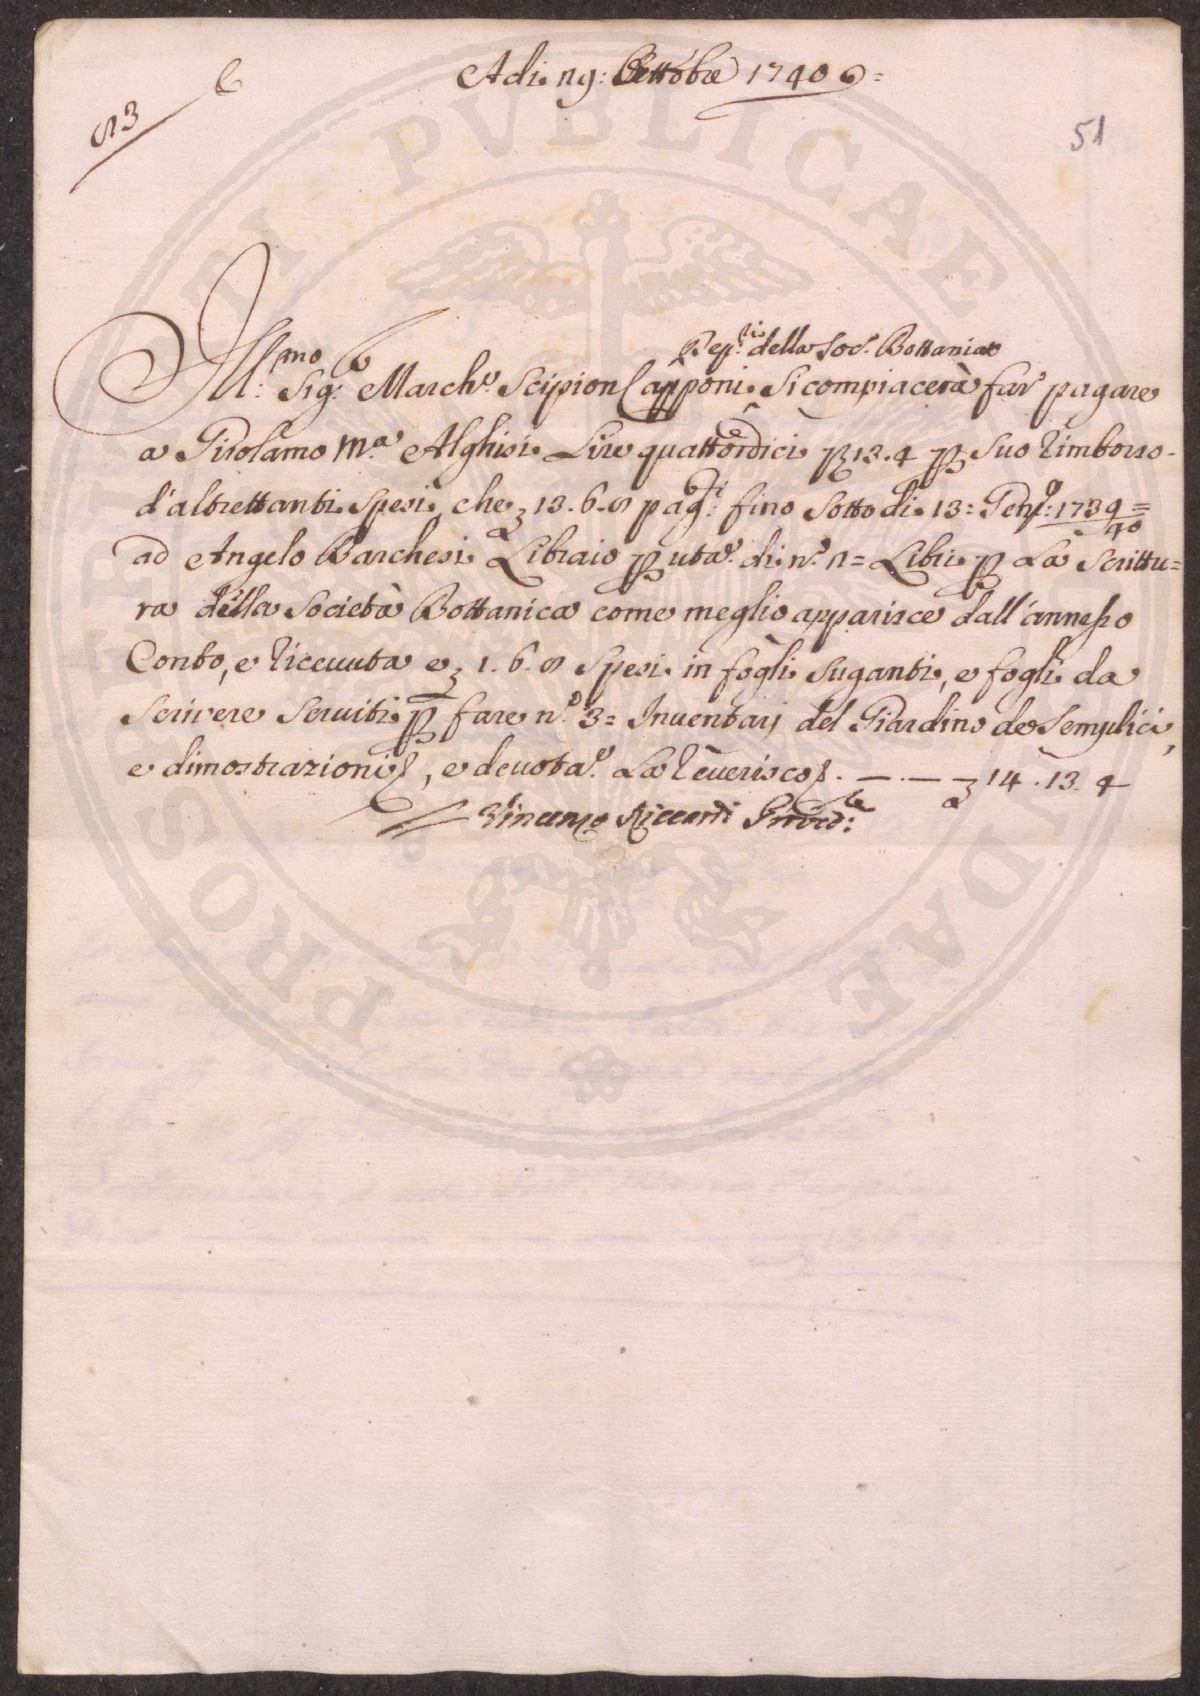 Adi 29: Ottobre 1740
51
Dep:rio della Soc.a Bottanica
Ill:mo Sig:e March.e Scipion Capponi Si compiacerà far pagare
a Girolamo M.a Alghisi Lire quattordici p 13.4 p Suo rimborso
d'altrettanti Spesi, che 13.6.8 pag:ti fino sotto di 13: Gen:o 1739=
40
ad Angelo Barchesi Libraio p uta di n.o 2= Libri p La Scrittu=
ra della Società Bottanica come meglio apparisce dall'annesso
Conto, e riceuuta e 1.6.8 Spesi in fogli suganti, e fogli da
scrivere seruiti p fare n.o 3= Inuentarj del Giardino de Semplici,
e dimostrazioni, e deuota.e La reuerisco. — . — 14.13.4
Vincenzo Riccardi Proved:e
PROSPERITATI PVBLICAE